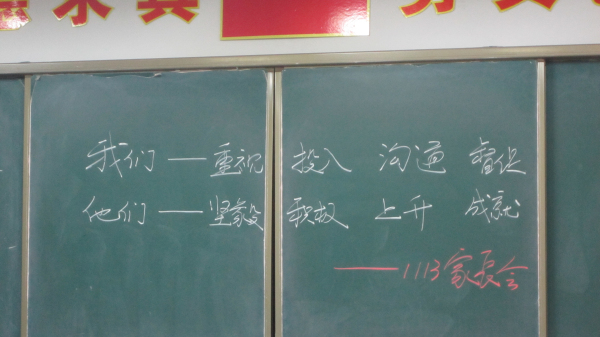 求真
我们——重视 投入 沟通 督促
他们——坚毅 积极 上升 成就
——1113家长会